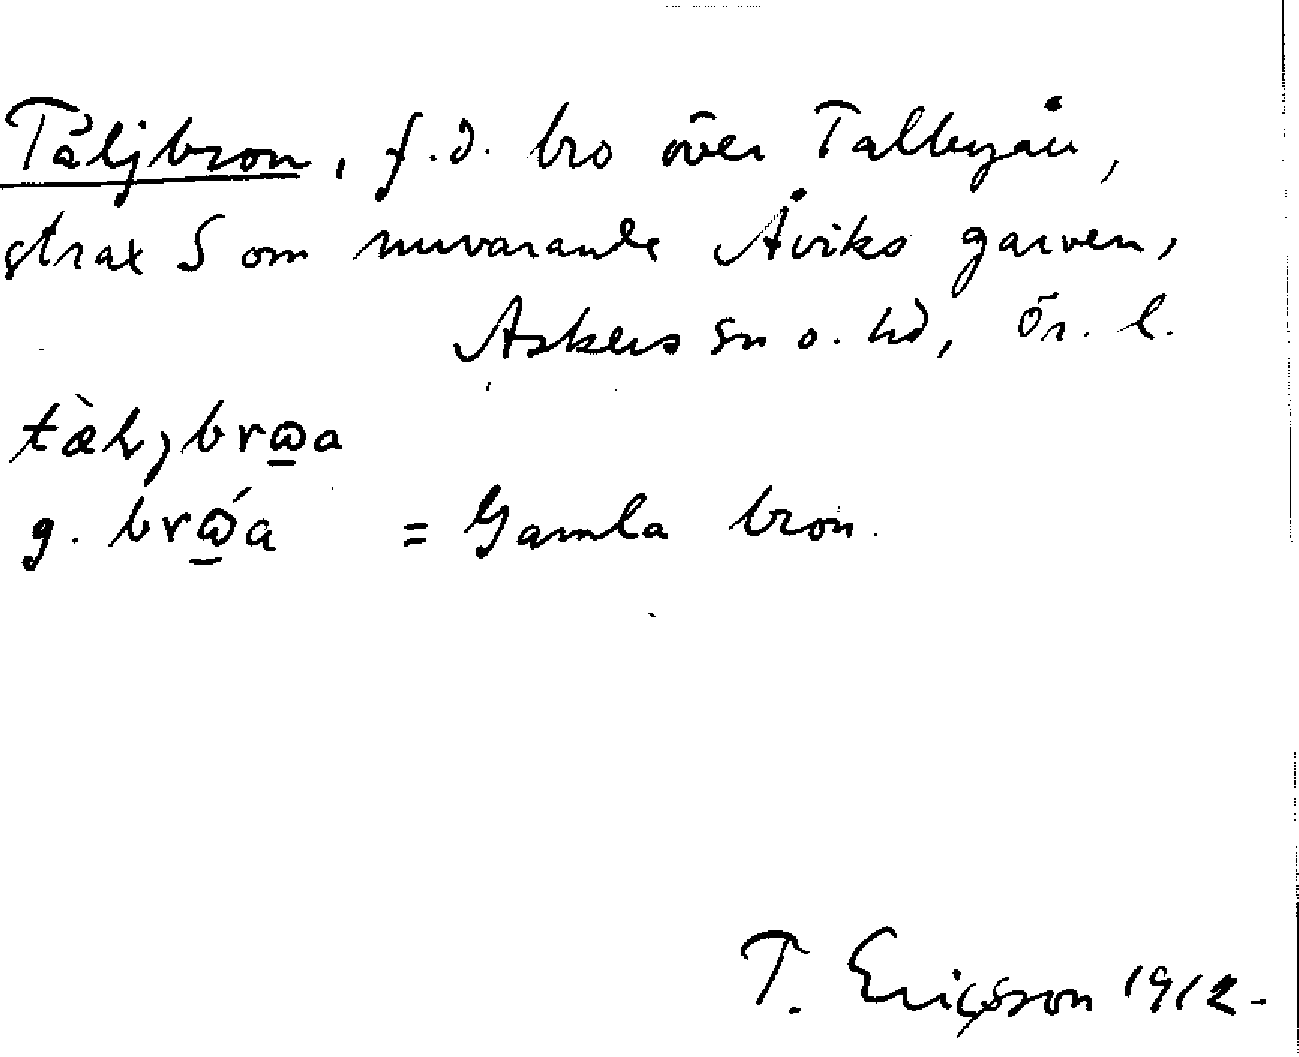 Täljbron, f.d. bro över Talbyån,
strax S om nuvarande Åviks garveri,
Askers sn o. hd, Ör. l.
tæ̀l,brωa
g. brώa = Gamla bron.
T. Ericsson 1912.